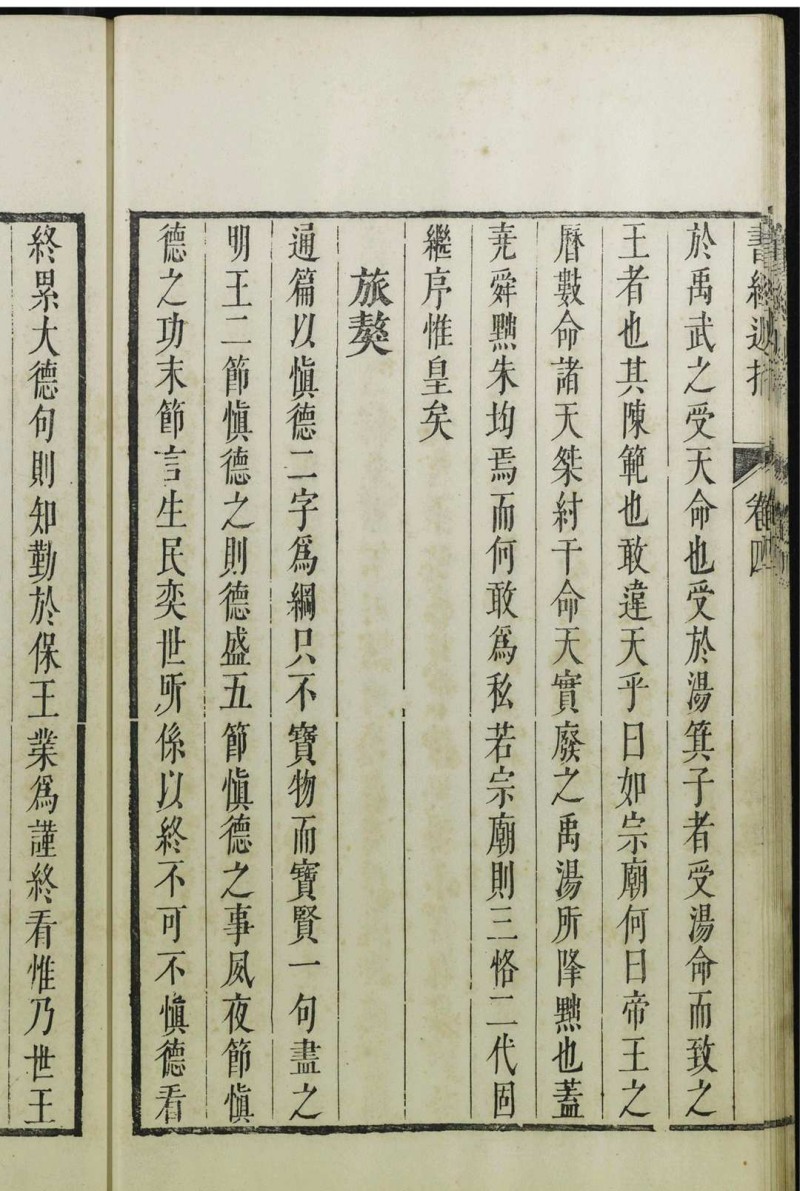 書經邇指 卷四
於禹武之受天命也受於湯箕子者受湯命而致之
王者也其陳範也敢違天乎曰如宗廟何曰帝王之
曆數命諸天桀紂干命天實廢之禹湯所降黜也蓋
堯舜黜朱均焉而何敢爲私若宗廟則三恪二代固
繼序惟皇矣
旅獒
通篇以愼德二字爲綱只不寶物而寶賢一句盡之
明王二節愼德之則德盛五節愼德之事夙夜節愼
德之功末節言生民奕世所係以終不可不愼德看
終累大德句則知勤於保王業爲謹終看惟乃世王